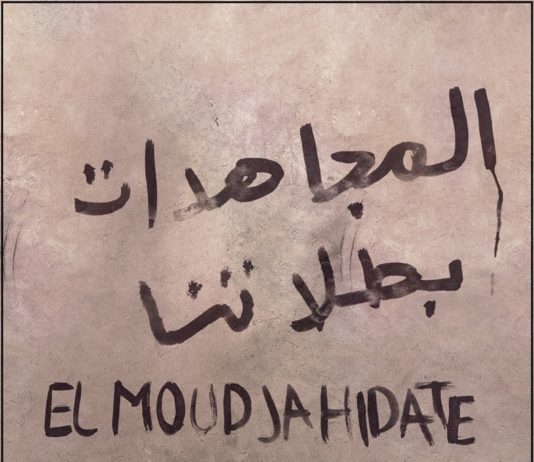 المجاهدات
بطلاتنا
EL MOUDJAHIDATE